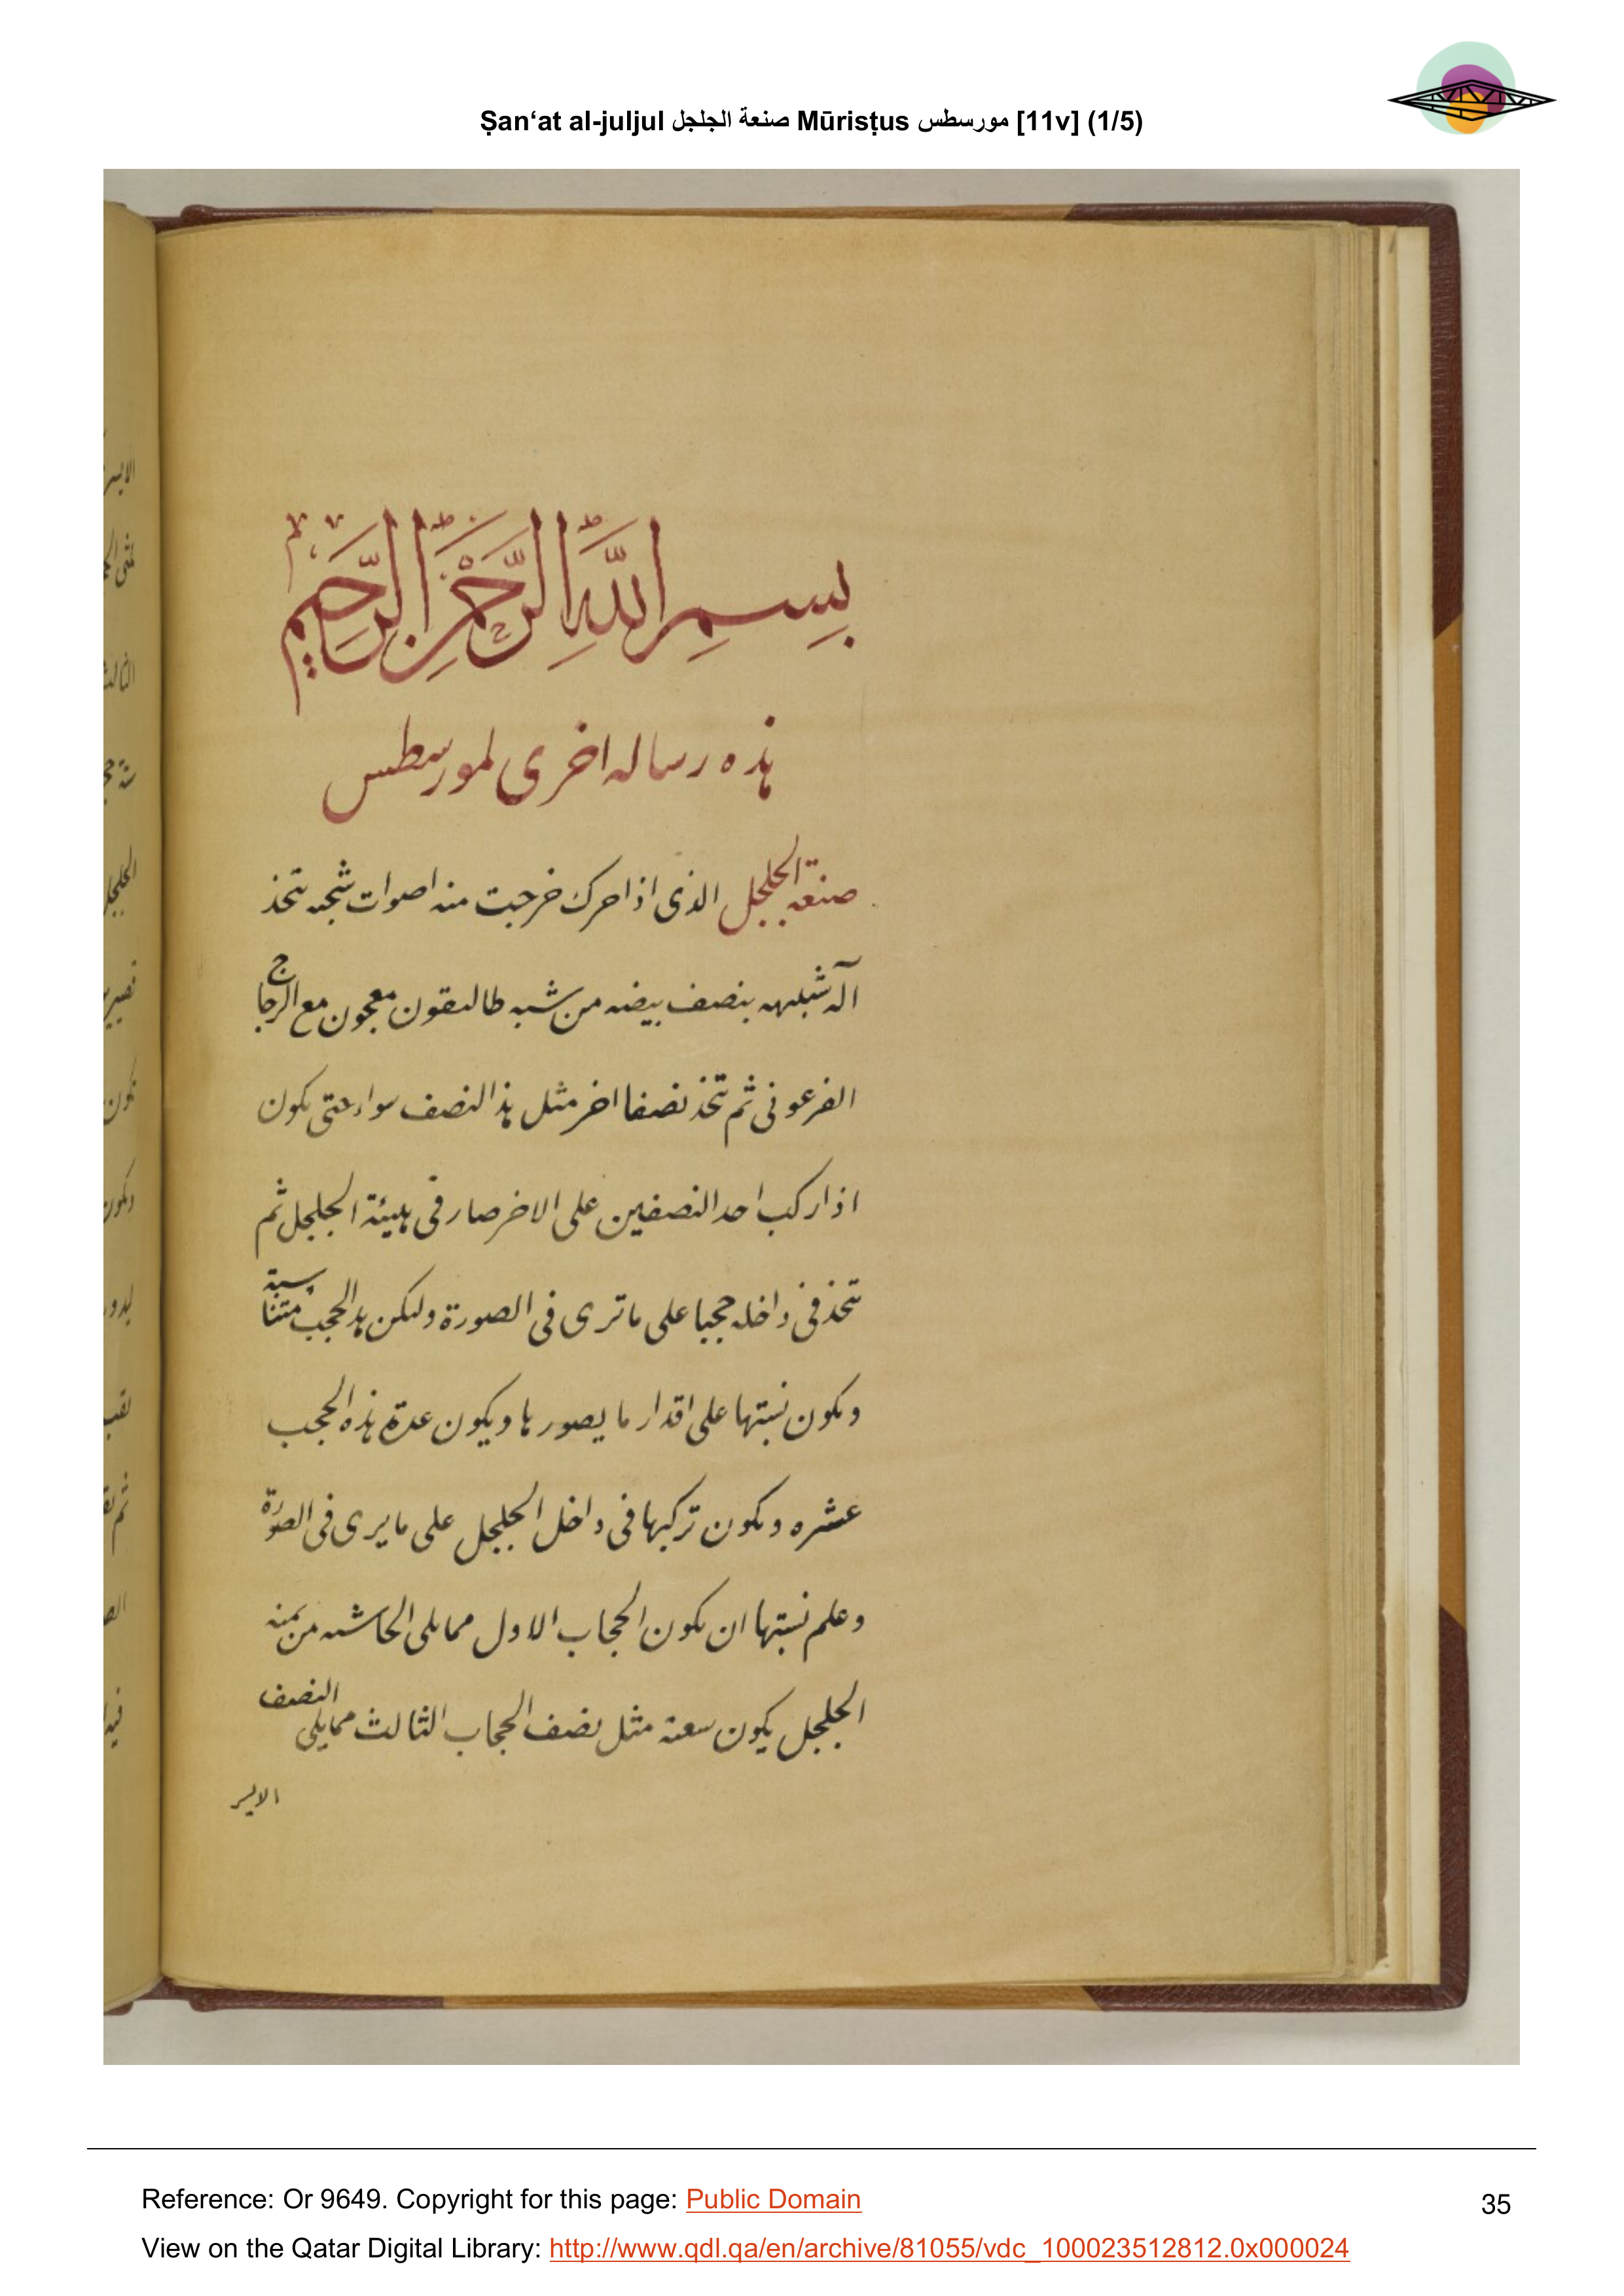 Ṣan‘at al-juljul صنعة الجلجل Mūrisṭus مورسطس [11v] (1/5)
بِسمِ اللَّهِ الرَّحْمنِ الرَّحِيمِ
هذه رساله اخرى لمورسطس
صنعة الجلجل الذى اذا حرك خرجت منه اصوات شجيه تتخذ
آله شبيهه بنصف بيضه من شبه طاليقون معجون مع الزجاج
الفرعونى ثم تتخذ نصفا اخر مثل هذا النصف سواء حتى يكون
اذا ركب احد النصفين على الاخر صار فى هيئة الجلجل ثم
تتخذ فى داخله حجبا على ما ترى فى الصورة وليكن هذا الحجب متناسبة
ويكون نسبتها على اقدار ما يصورها ويكون عدة هذه الحجب
عشره ويكون تركيبها فى داخل الجلجل على ما يرى فى الصورة
وعلم نسبتها ان يكون الحجاب الاول مما يلى الحاشيه من يمنه
الجلجل يكون سعته مثل نصف الحجاب الثالث مما يلى النصف
الايسر
Reference: Or 9649. Copyright for this page: Public Domain
35
View on the Qatar Digital Library: http://www.qdl.qa/en/archive/81055/vdc_100023512812.0x000024